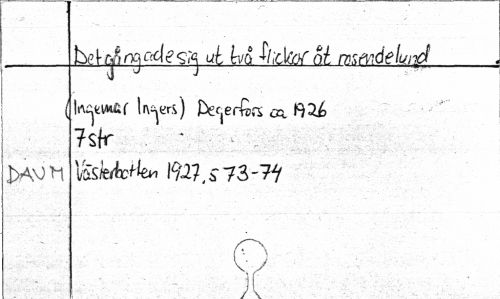 Det gångade sig ut två flickor åt rosendelund
(Ingemar Ingers) Degerfors ca 1926
7 str
DAUM Västerbotten 1927, s 73-74